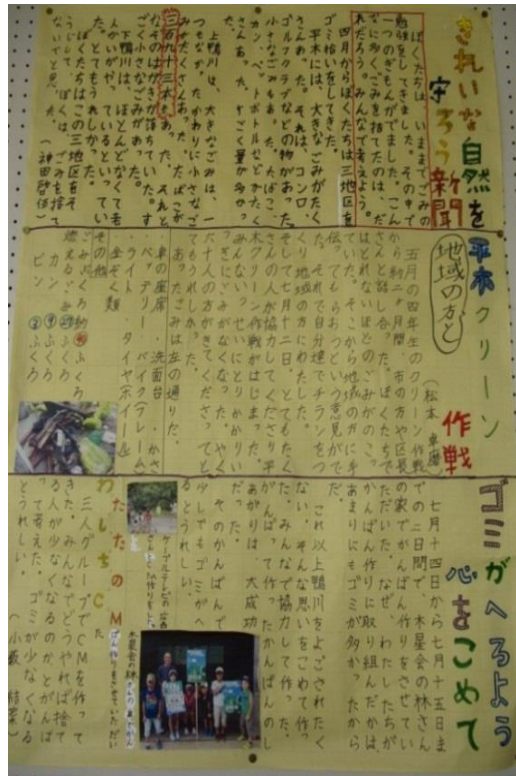 きれいな自然を
守ろう新聞
ぼくたちは、いままでごみの
勉強をしてきました。その中で
一つのぎもんがでました。こん
なに多くごみを捨てたのは、だ
れだろう。みんなで考えよう。
四月からぼくたちは三地区を
ゴミ拾いをしてきた。
平木には、大きなごみがたく
さんあった。それは、コンロ、
ゴルフクラブなどの物があった。
小さなごみもあった。たばこ、
カン、ペットボトルなどがたく
さんあった。すごく量が多かっ
た。
上鴨川は、大きなごみは、一
つもなか。かわりに小さなご
みがたくさんあった。たばこが
三百九十三本もあった。それと
なぞのはがきが落ちていた。す
ごく小さなごみがあった。
下鴨川は、ほとんどなくても
人がいがやっているといってい
た。とてもうれしかった。
ぼくたちはこの三地区をそ
うじして、ぼくは、ごみを捨て
ないでと思った。
平木クリーン
作戦
地域の方と
五月の四年生のクリーン作戦
から約二ヶ月間、市の方や区長
さんと話し合った。ぼくたちで
はとれないほどのごみがのこっ
ていた。そこから地域の方に手
伝ってもらおうという意見がで
た。それで自分達でチラシをつ
くり地域の方にわたした。
そして七月十二日、とてもたく
さんの人が協力してくださり平
木クリーン作戦がはじまった。
みんないっせいにとりかかりい
っきにごみがなくなった。やく
六十人の方がきてくださってと
てもうれしかった。
あったごみは左の通りだ。
車の座席 洗面台 かさ
バッテリー バイクフレーム
ライト タイヤ(ホイール)
金ぞく類
その他
ごみぶくろ
燃えるごみ ふくろ
カン ふくろ
ビン ふくろ
ゴミがへるよう
心をこめて
七月十四日から七月十五日ま
での二日間で、木星会の林さん
の家でかんばん作りをさせてい
ただいた。なぜ、わたしたちが
かんばん作りに取り組んだかは、
あまりにもゴミが多かったから
だ。
これ以上鴨川をよごされたく
ない。そんな思いをこめて作っ
た。みんなで協力して作った。
がんばって作ったかんばんのし
あがりは、大成功だった。
そのかんばんで
少しでもゴミがへ
るとうれしい。
わたしたちのCM
三人グループでCMを作って
きた。みんなでどうやれば捨て
る人が少なくなるのかとがんば
って考えた。ゴミが少なくなる
とうれしい。